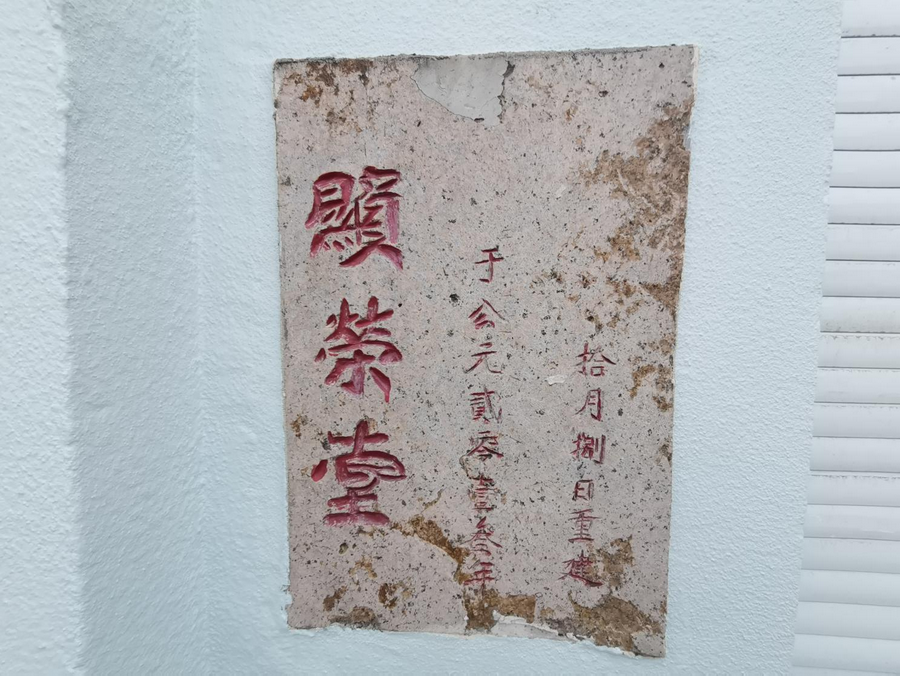 顯榮堂
于公元貳零壹叁年
拾月捌日重建